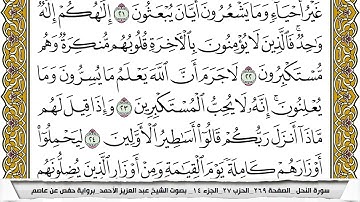 غَيْرُ أَحْيَآءٍ وَمَا يَشْعُرُونَ أَيَّانَ يُبْعَثُونَ ٢١ إِلَٰهُكُمْ إِلَٰهٌ
وَٰحِدٌ فَٱلَّذِينَ لَا يُؤْمِنُونَ بِٱلْءَاخِرَةِ قُلُوبُهُم مُّنكِرَةٌ وَهُم
مُّسْتَكْبِرُونَ ٢٢ لَا جَرَمَ أَنَّ ٱللَّهَ يَعْلَمُ مَا يُسِرُّونَ وَمَا
يُعْلِنُونَ إِنَّهُۥ لَا يُحِبُّ ٱلْمُسْتَكْبِرِينَ ٢٣ وَإِذَا قِيلَ لَهُم
مَّاذَآ أَنزَلَ رَبُّكُمْ قَالُوٓا۟ أَسَٰطِيرُ ٱلْأَوَّلِينَ ٢٤ لِيَحْمِلُوٓا۟
أَوْزَارَهُمْ كَامِلَةً يَوْمَ ٱلْقِيَٰمَةِ وَمِنْ أَوْزَارِ ٱلَّذِينَ يُضِلُّونَهُم
سورة النحل _ الصفحة ٢٦٩ _ الحزب ٢٧ _ الجزء ١٤ _ بصوت الشيخ عبد العزيز الأحمد _ برواية حفص عن عاصم